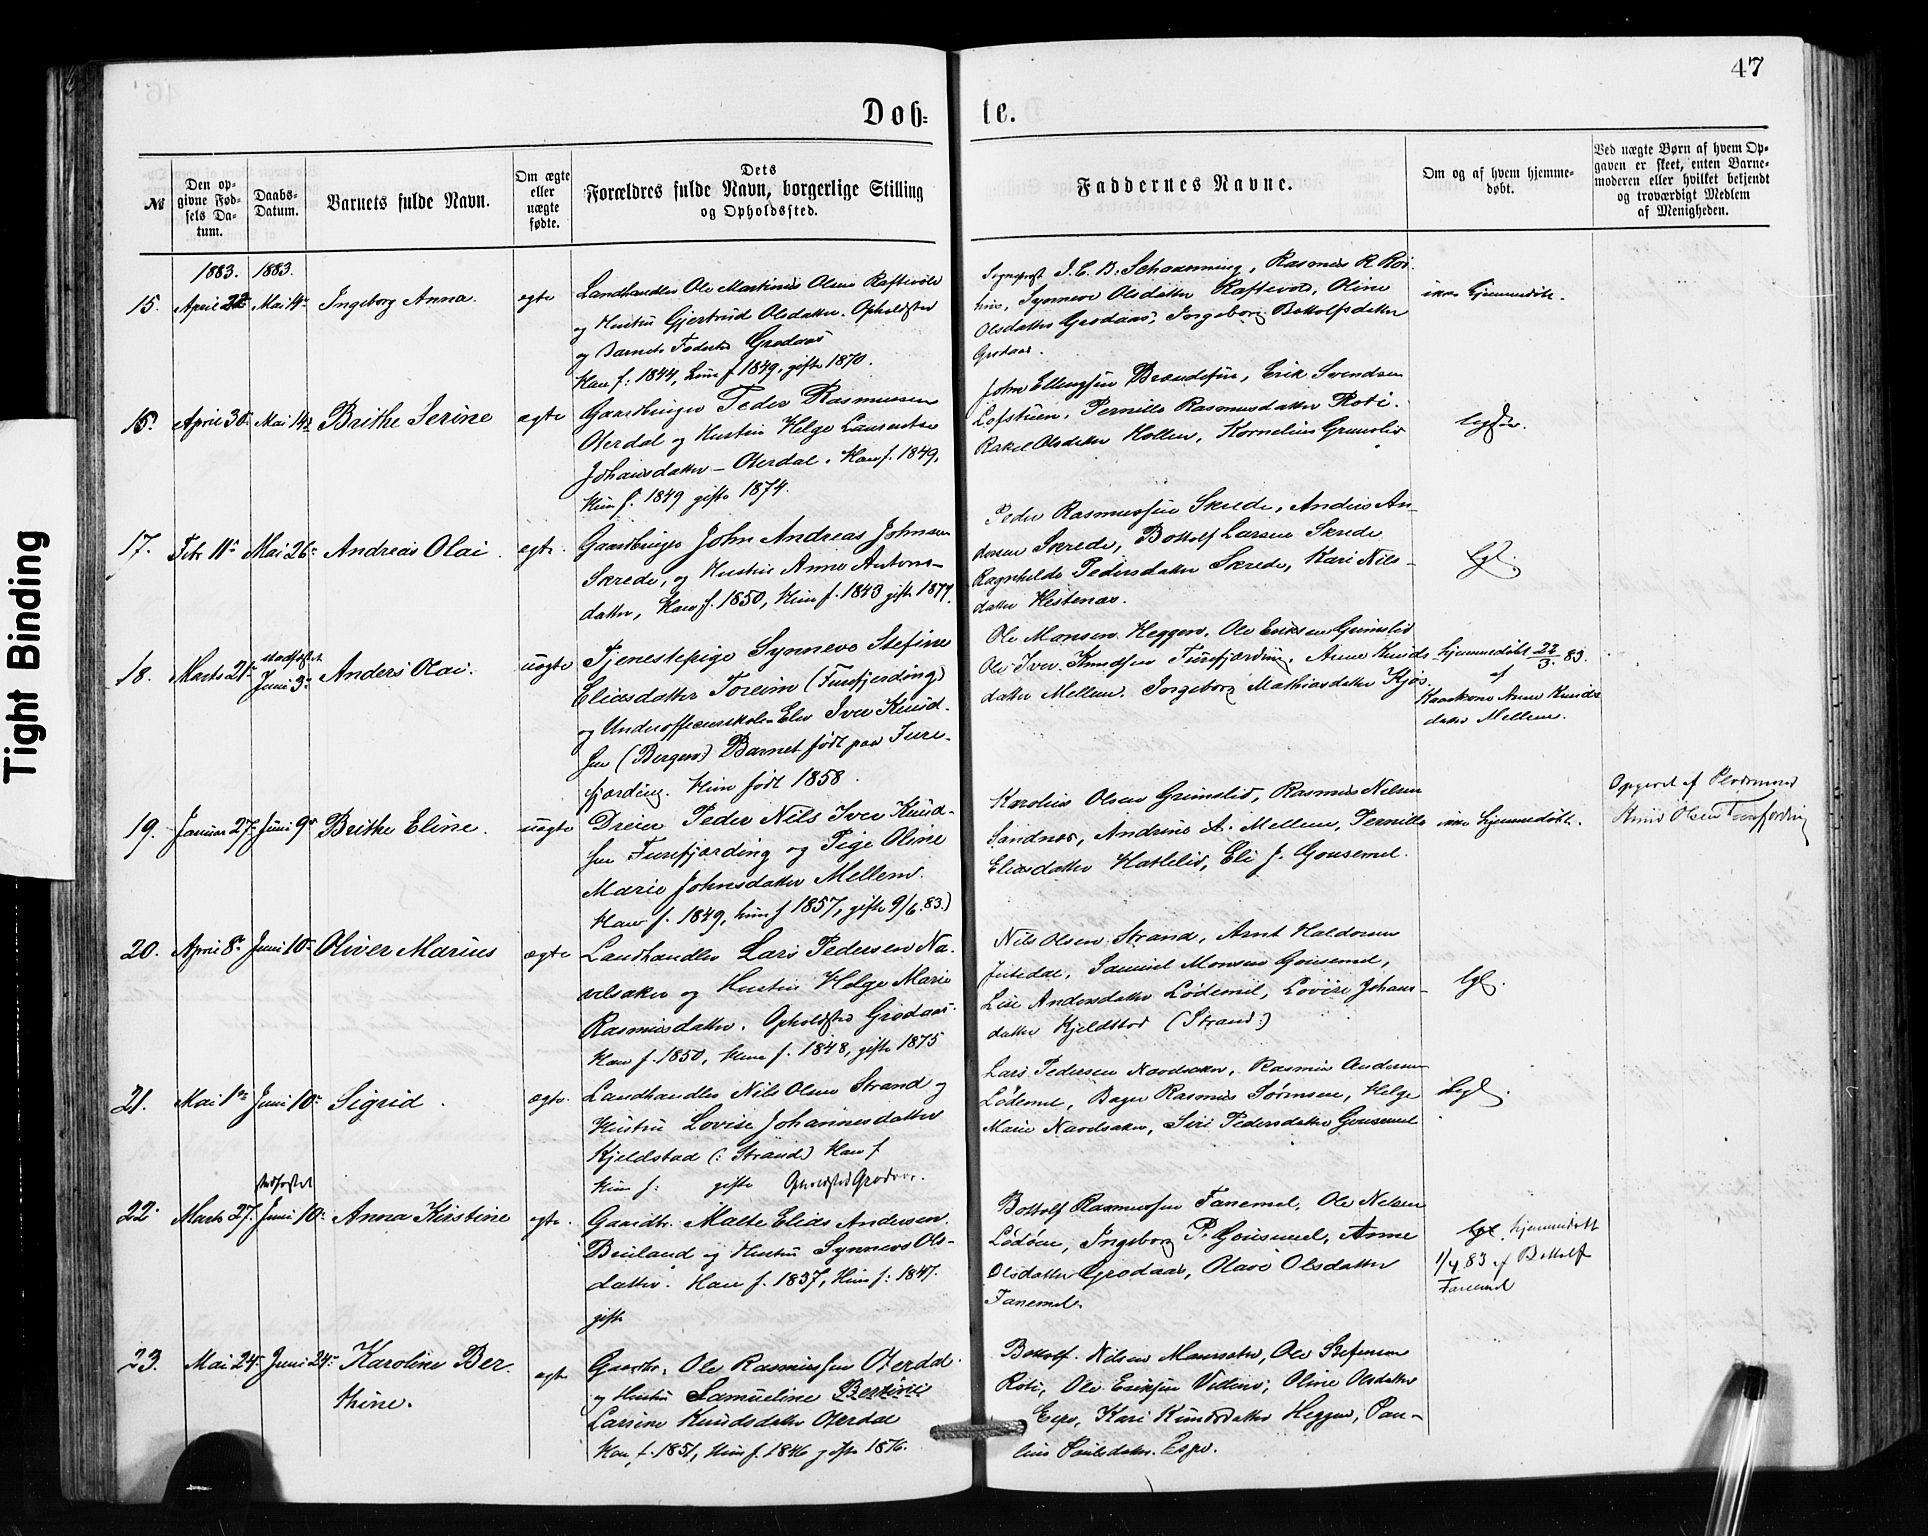 47
Döb=
te.
№
Den op-
givne Fød-
sels Da-
tum.
Daabs-
Datum.
Barnets fulde Navn.
Om ægte
eller
uægte
fødte.
Dets
Forældres fulde Navn, borgerlige Stilling
og Opholdssted.
Faddernes Navne.
Om og af hvem hjemme-
døbt.
Ved uægte Børn af hvem Op-
gaven er skeet, enten Barne-
moderen eller hvilket bekjendt
og troværdigt Medlem
af Menigheden.
1883. 1883.
15. April 22 Mai 14 Ingeborg Anna. egte
Landhandler Ole Martinus Olsen Raftevold
og Hustru Gjertrud Olsdatter. Opholdssted
og Barnets Fødested Grodaas
Han f. 1844, hun f 1849, gifte 1870.
Sogneprest J. C. B. Schaanning, Rasmus R Ro
hus, Synneve Olsdatter Raftevold, Oline
Olsdatter Grodaas, Ingeborg Bottolfsdatter
Grodaas.
ikke hjemmedøbt.
16. April 30 Mai 14 Brithe Serine ægte
Gaardbruger Peder Rasmussen
Oterdal og Hustru Helge Laurentse
Johansdatter - Oterdal. Han f. 1849,
Hun f. 1849 gifte 1874.
John Ellingsen Brendefur, Erik Svendsen
Loftsuen, Pernille Rasmusdatter Roti.
Rakel Olsdatter Hollen, Kornelius Grimslid
17. Febr 11 Mai 26 Andreas Olai. egte.
Gaardbruger John Andreas Johnsen
Skrede, og Hustru Anne Antons-
datter, Han f. 1850, Hun f. 1843 gifte 1877.
Peder Rasmussen Skrede, Anders An-
dersen Skrede, Bottolf Larsen Skrede
Ragnhilde Pedersdatter Skrede, Kari Nils-
datter Hestenæs.
Lgl.
18. Marts 21 stadfæstet
Juni 3 Anders Olai. uægte
Tjenestepige Synneve Stefine
Eliasdatter Toreim (Furefjording)
og Underofficerskole-Elev Iver Knud-
sen (Bergen) Barnet født paa Fure-
fjording. Hun født 1858.
Ole Monsen Heggen, Ole Eriksen Grimslid
Ole Iver Knudsen Furefjording, Anne Knuds
datter Mellem. Ingeborg Mathiasdatter Kjøs.
hjemmedøbt 22/3 83.
af
Kaarkone Anne Knuds
datter Mellem.
19. Januar 27. Juni 9 Brithe Eline. uægte
Dreier Peder Nils Iver Knud-
sen Furefjording og Pige Oline
Marie Johnsdatter Mellem.
Han f. 1849, hun f 1857, gifte 9/6.83.)
Karolius Olsen Grimslid, Rasmus Nilsen
Sandnes, Andrine A. Mellem, Pernille
Eliasdatter Hatlelid, Eli J. Gousemel.
ikke hjemmedøbt.
Opgivet af
Knud Olsen Furefjording
20. April 8 Juni 10 Oliver Marius ægte
Landhandler Lars Pedersen Na-
velsaker og Hustru Helge Marie
Rasmusdatter. Opholdssted Grodaas.
Han f. 1850, hun f. 1848, gifte 1875
Nils Olsen Strand, Arnt Haldorsen
Juledal, Samuel Monsen Gousemel,
Lise Andersdatter Lødemel, Lovise Johans-
datter Kjeldstad (Strand:)
Lgl.
21. Mai 1 Juni 10 Sigrid. ægte.
Landhandler Nils Olsen Strand og
Hustru Lovise Johannesdatter
Kjeldstad (: Strand) Han f
Hun f: gifte Opholdssted Grodaas.
Lars Pedersen Navelsaker, Rasmus Andersen
Lødemel, Bager Rasmus Sørensen, Helge
Marie Navelsaker, Siri Pedersdatter Gousemel
Lgl.
22. Marts 27. stadfæstet
Juni 10 Anna Kirstine egte.
Gaardbr. Malte Elias Andersen
Bruland og Hustru Synneve Ols-
datter. Han f. 1837, Hun f. 1847.
gifte
Bottolf Rasmussen Tanemel, Ole Nilsen
Lødøen, Ingeborg P. Gousemel, Anne
Olsdatter Grodaas, Olave Olsdatter
Tanemel.
Lgl. hjemmedøbt
1/4 83 af Bottolf
Tanemel
23. Mai 24 Juni 24 Karoline Ber-
thine. egte
Gaardbr. Ole Rasmussen Oterdal
og Hustru Samueline Bertine
Larsine Knudsdatter Oterdal
Han f. 1851, Hun f. 1846 gifte 1876.
Bottolf Nilsen Maurseter, Ole Stefensen
Roti, Ole Eriksen Vollene, Oline Olsdatter
Espe, Kari Knudsdatter Heggen, Pau-
line Paulsdatter Espe.
Tight Binding